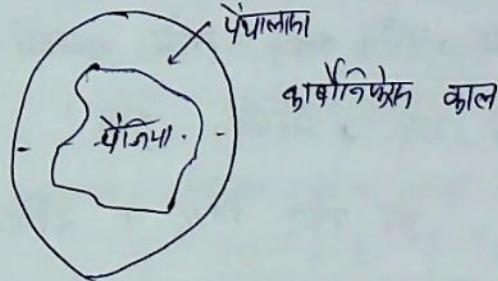 पैंथालासा
कार्बोनिफेरस काल
पैंजिया